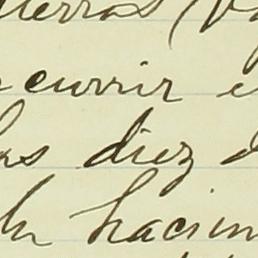 ierras (
currir e
las diez
la hacien